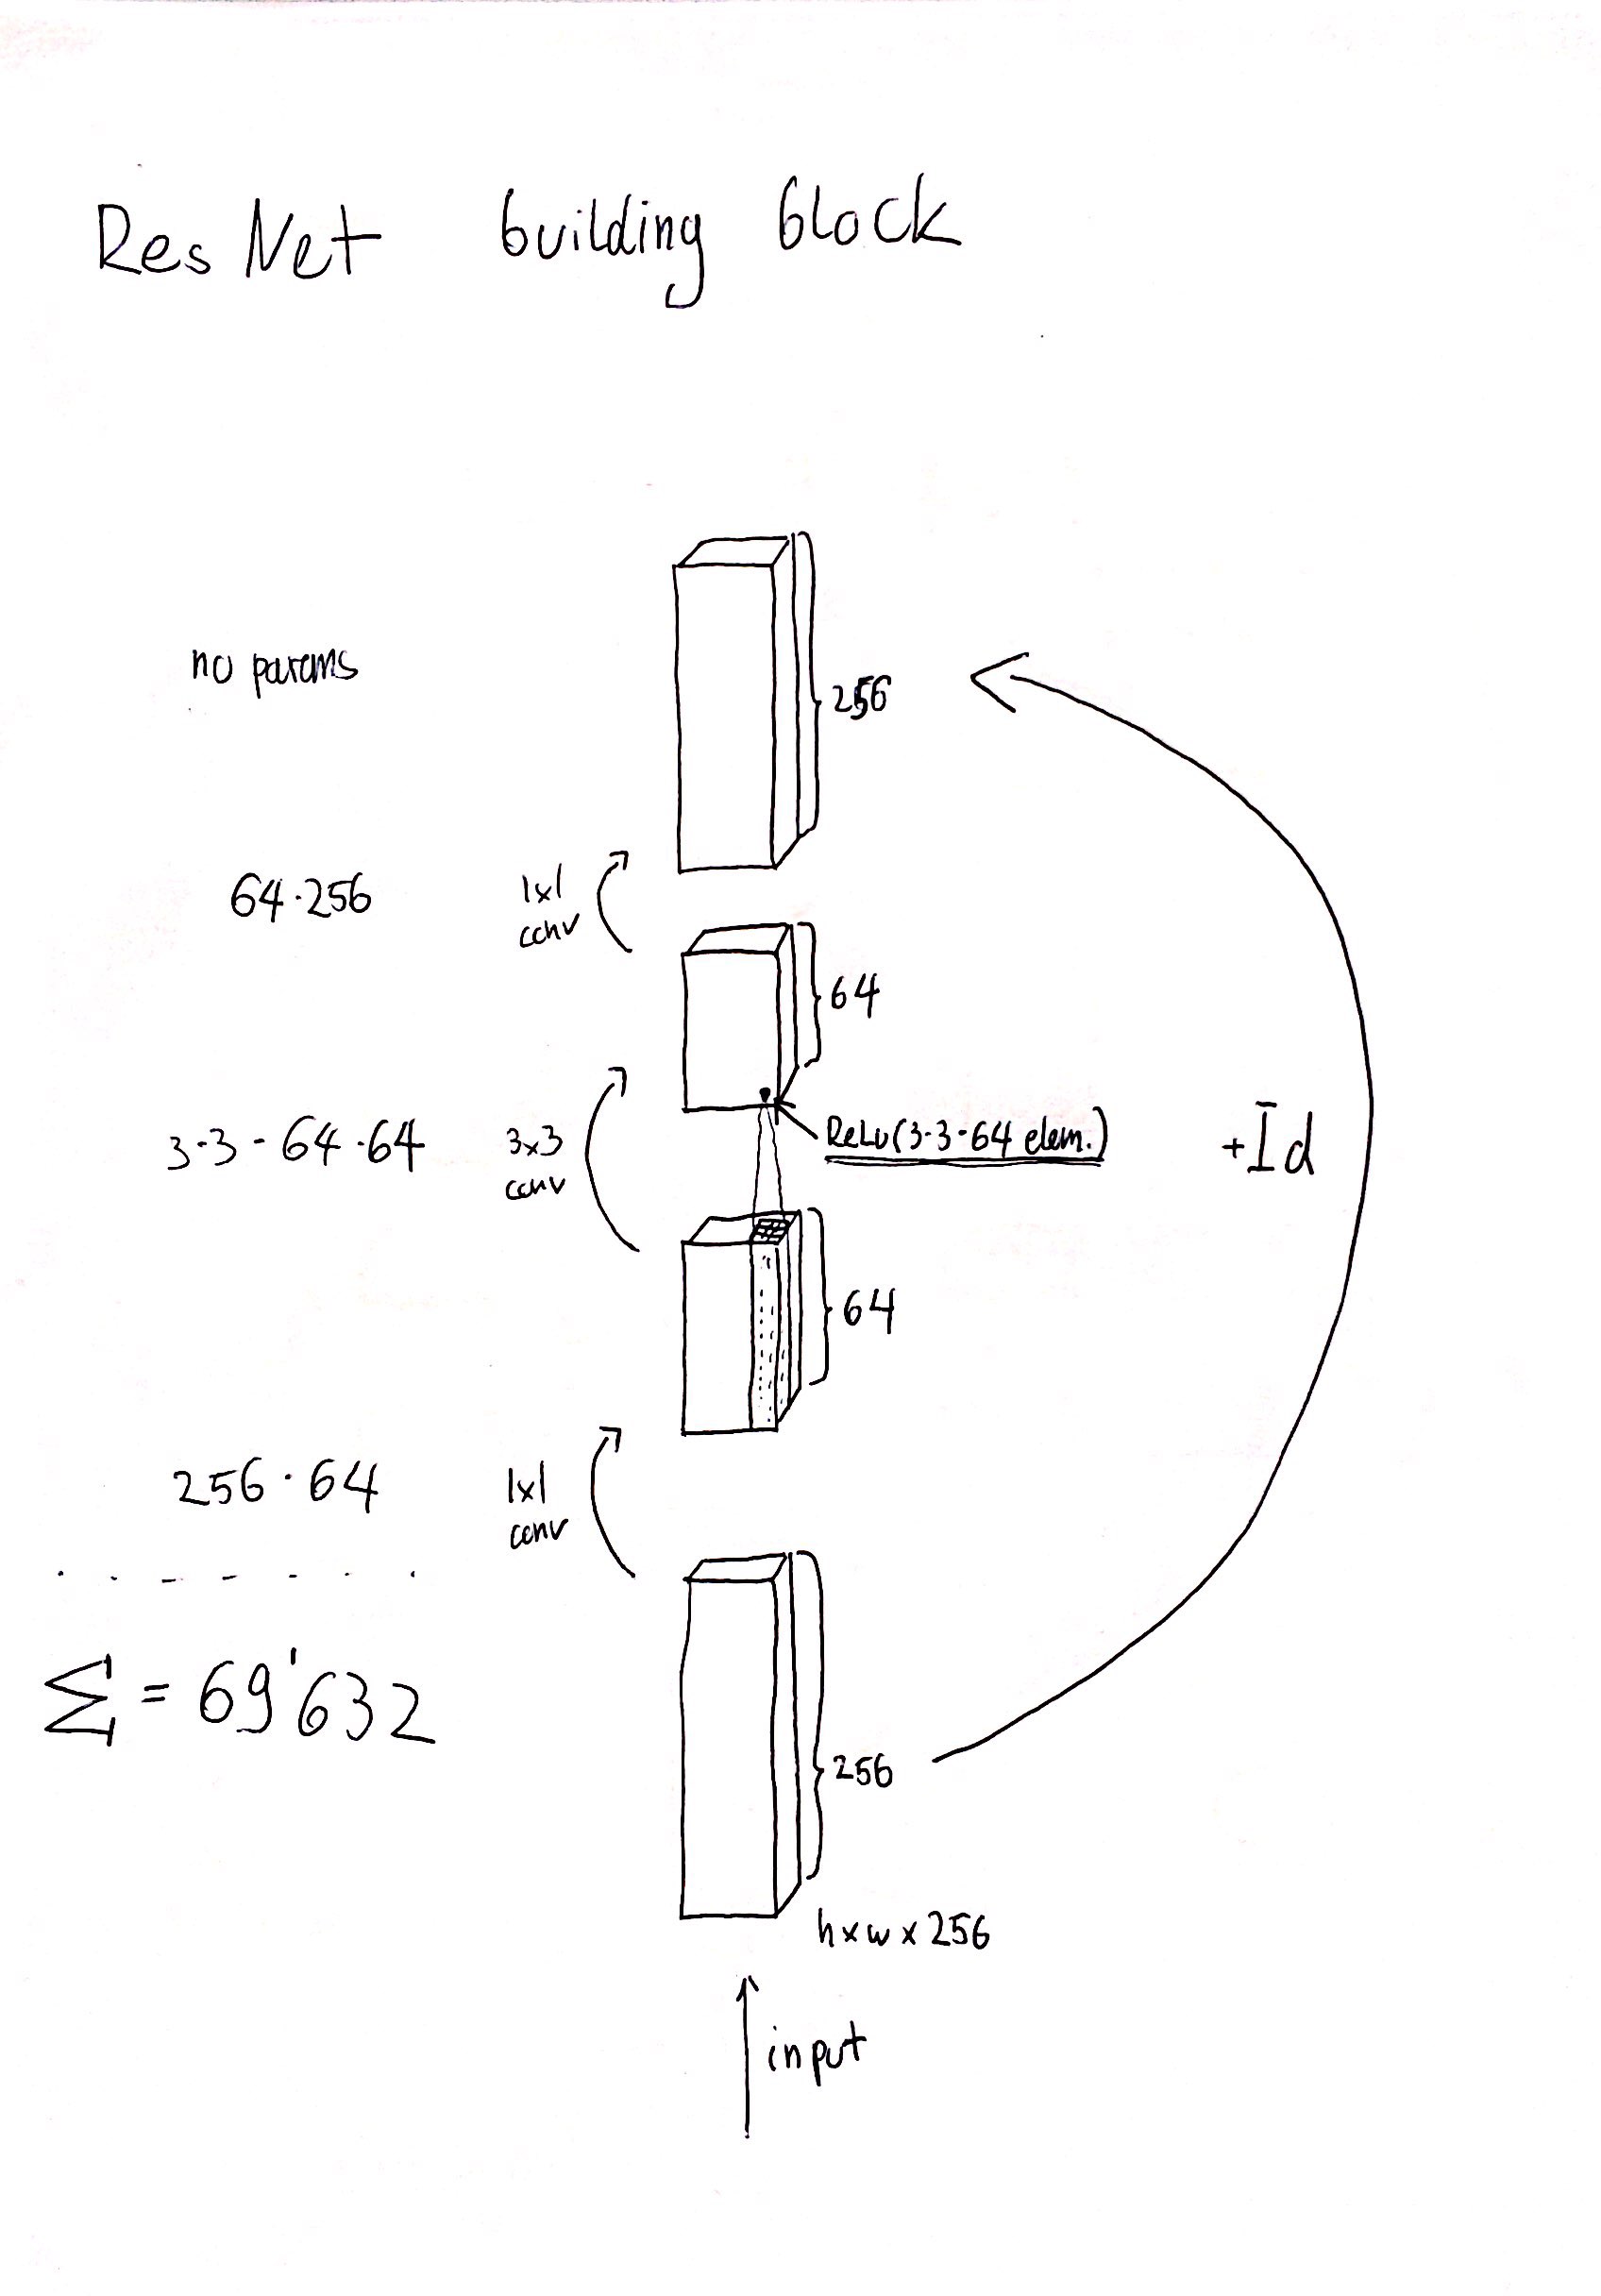 ResNet building block
no params
256
64·256
1x1
conv
64
3·3·64·64
3x3
conv
ReLu(3·3·64 elem.)
+Id
64
256·64
1x1
conv
Σ = 69'632
256
hxwx256
input